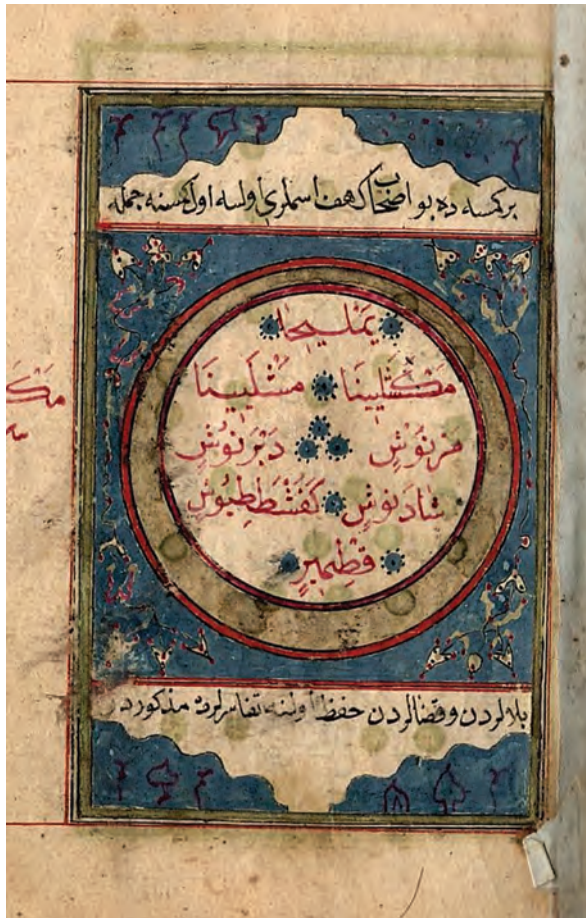 بر كمسه ده بو اصحاب كهف اسملرى اولسه اول كمسنه جمله
يَمْلِيخَا
مَكْسَلْيِينَا مَشْلَيِينَا
مَرْنُوشِ دَبَرْنُوشِ
شَادَنُوشِ كَفَشْطَطِيُوشِ
قِطْمِيرٍ
بلالردن وقضالردن حفظ اولنه تفاسيرلرده مذكوردر